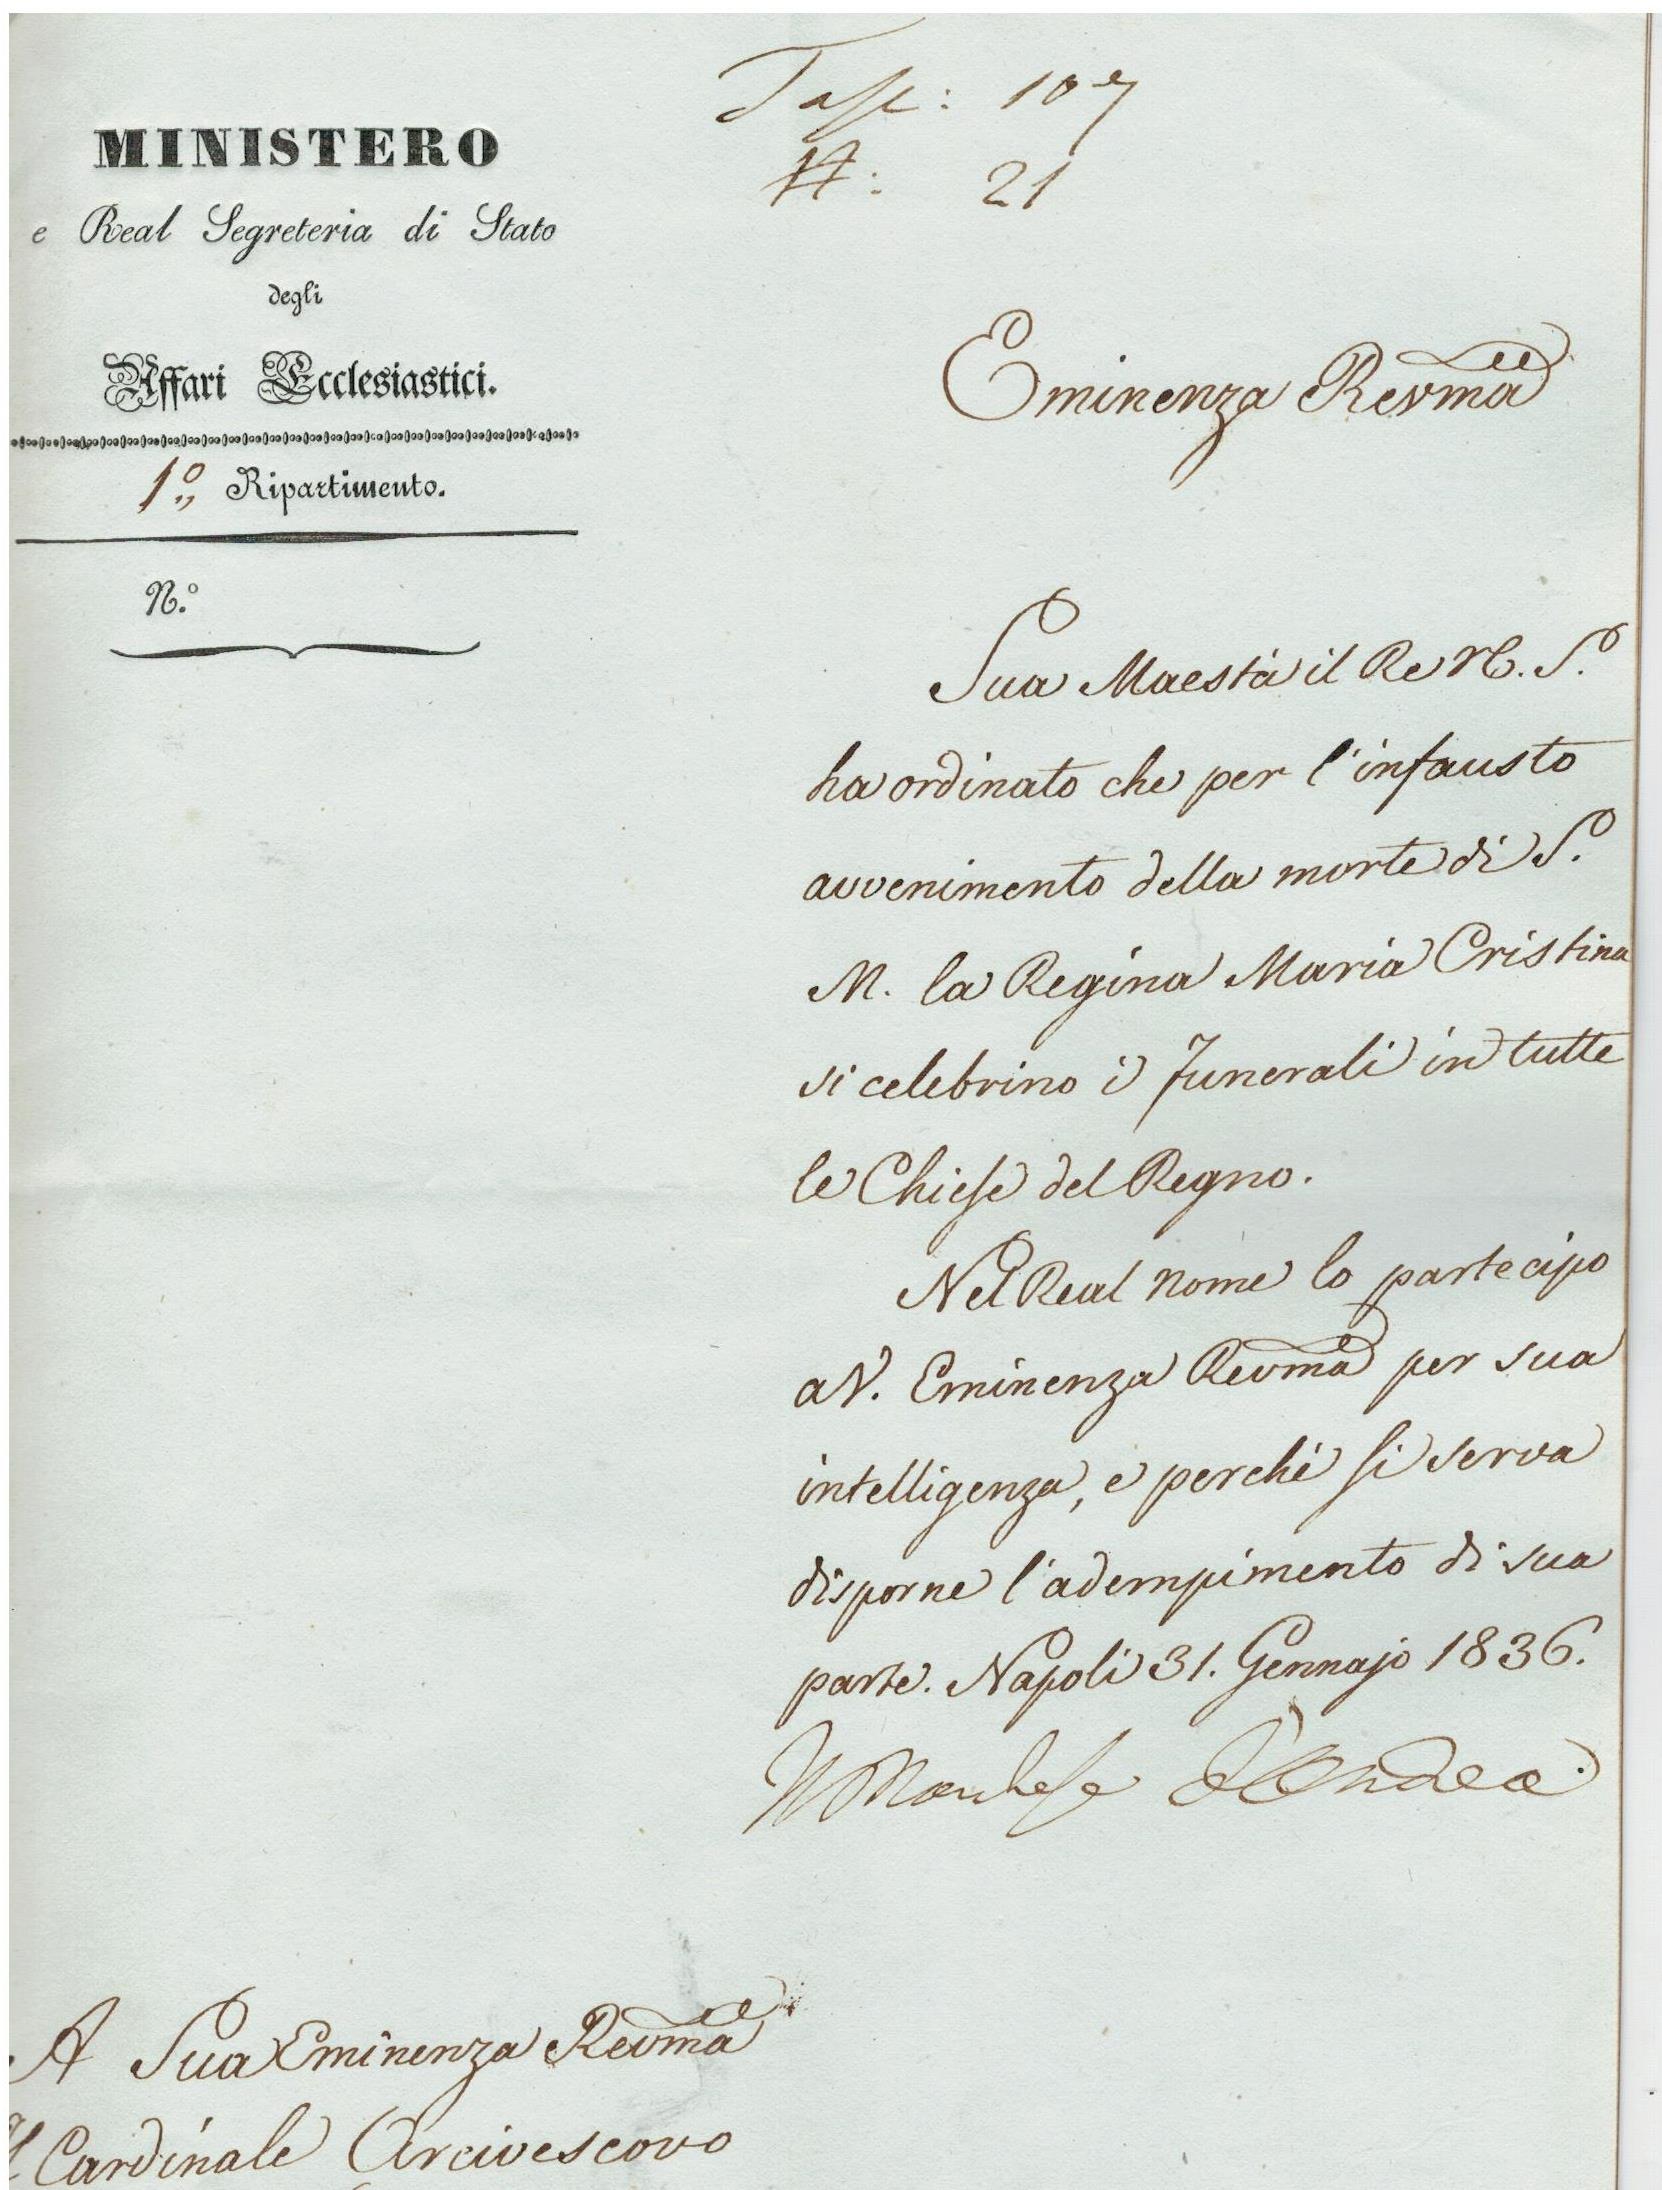 Fasc: 107
N: 21
MINISTERO
e Real Segreteria di Stato
degli
Affari Ecclesiastici.
1º Ripartimento.
N.º
Eminenza Revma
Sua Maestà il Re N. S.
ha ordinato che per l'infausto
avvenimento della morte di S.
M. la Regina Maria Cristina
si celebrino i funerali in tutte
le Chiese del Regno.
Nel Real nome lo partecipo
a V. Eminenza Revma per sua
intelligenza, e perché si serva
disporne l'adempimento di sua
parte. Napoli 31. Gennajo 1836.
Il Marchese d'Andrea
A Sua Eminenza Revma
Il Cardinale Arcivescovo